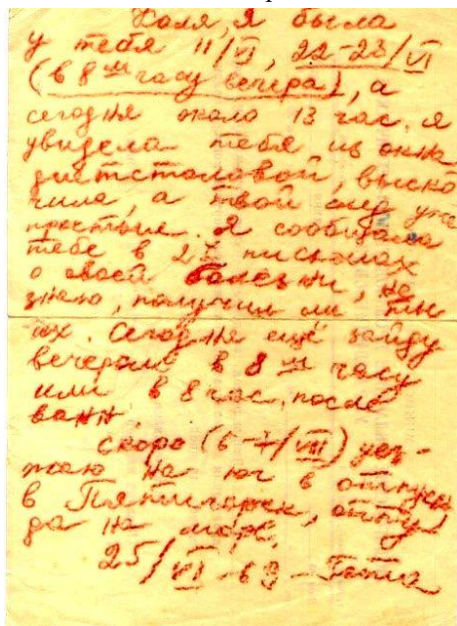 Коля, я была
у тебя 11/VI, 22-23/VI
(в 8ᵐ часу вечера), а
сегодня около 13 час. я
увидела тебя из окна
диетстоловой, выско
чила, а твой след уже
простыл. Я сообщала
тебе в 2ˣ письмах
о своей болезни, не
знаю, получил ли ты
их. Сегодня ещё зайду
вечером в 8ᵐ часу
или в 8 час, после
ванн.
Скоро (6-7/VIII) уез-
жаю на юг в отпуск
в Пятигорск, отту
да на море.
25/VI-69 -